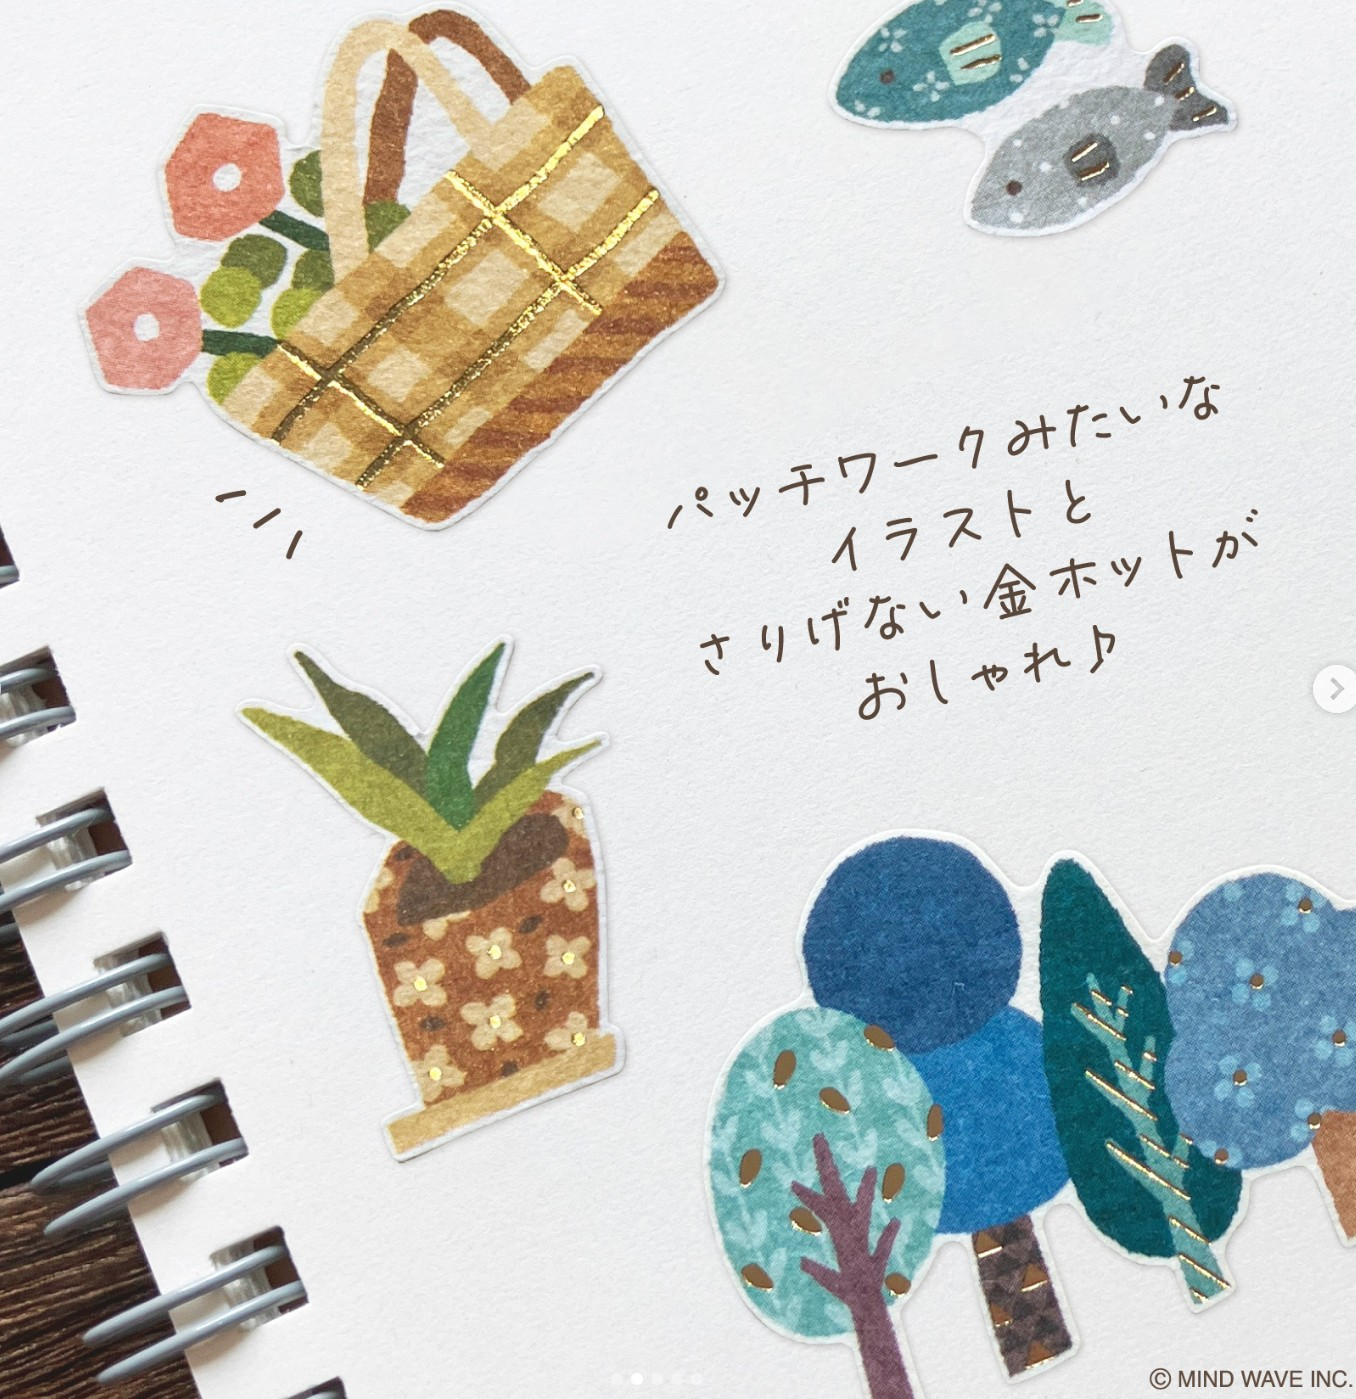 パッチワークみたいな
イラストと
さりげない金ホットが
おしゃれ♪
© MIND WAVE INC.